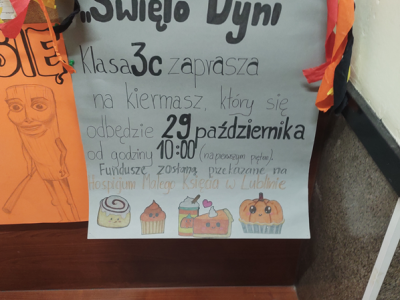 „Święto Dyni
Klasa 3c zaprasza
na kiermasz, który się
odbędzie 29 października
od godziny 10:00 (na pierwszym piętrze).
Fundusze zostaną przekazane na
Hospicjum Małego Księcia w Lublinie
SIĘ